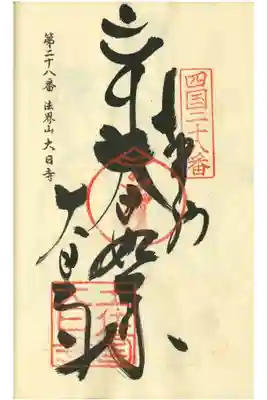 四国二十八番
奉納
大日如来
大日寺
第二十八番 法界山 大日寺